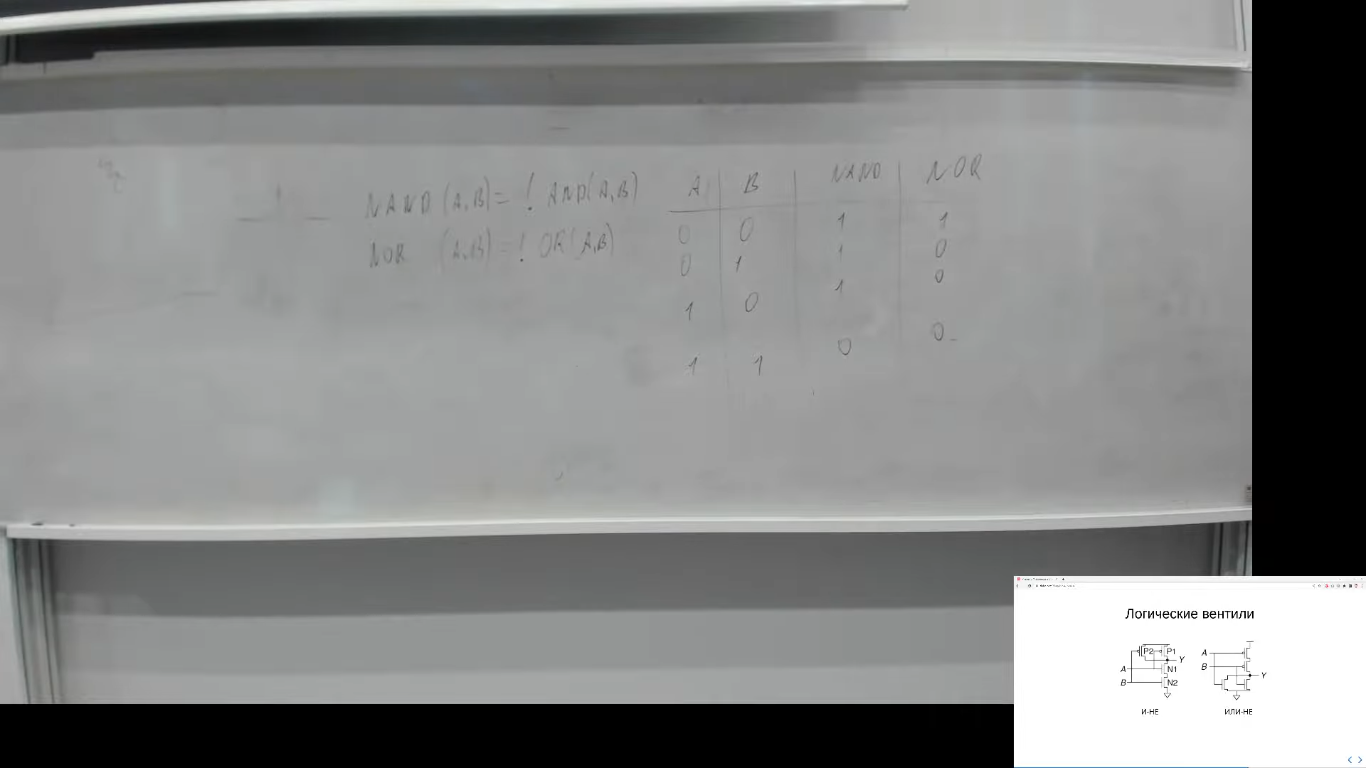 NAND (A,B) = ! AND(A,B)
NOR (A,B) = ! OR(A,B)
A B NAND NOR
0 0 1 1
0 1 1 0
1 0 1 0
1 1 0 0
Логические вентили
P2 P1
Y
A N1
B N2
И-НЕ
A
B
Y
ИЛИ-НЕ